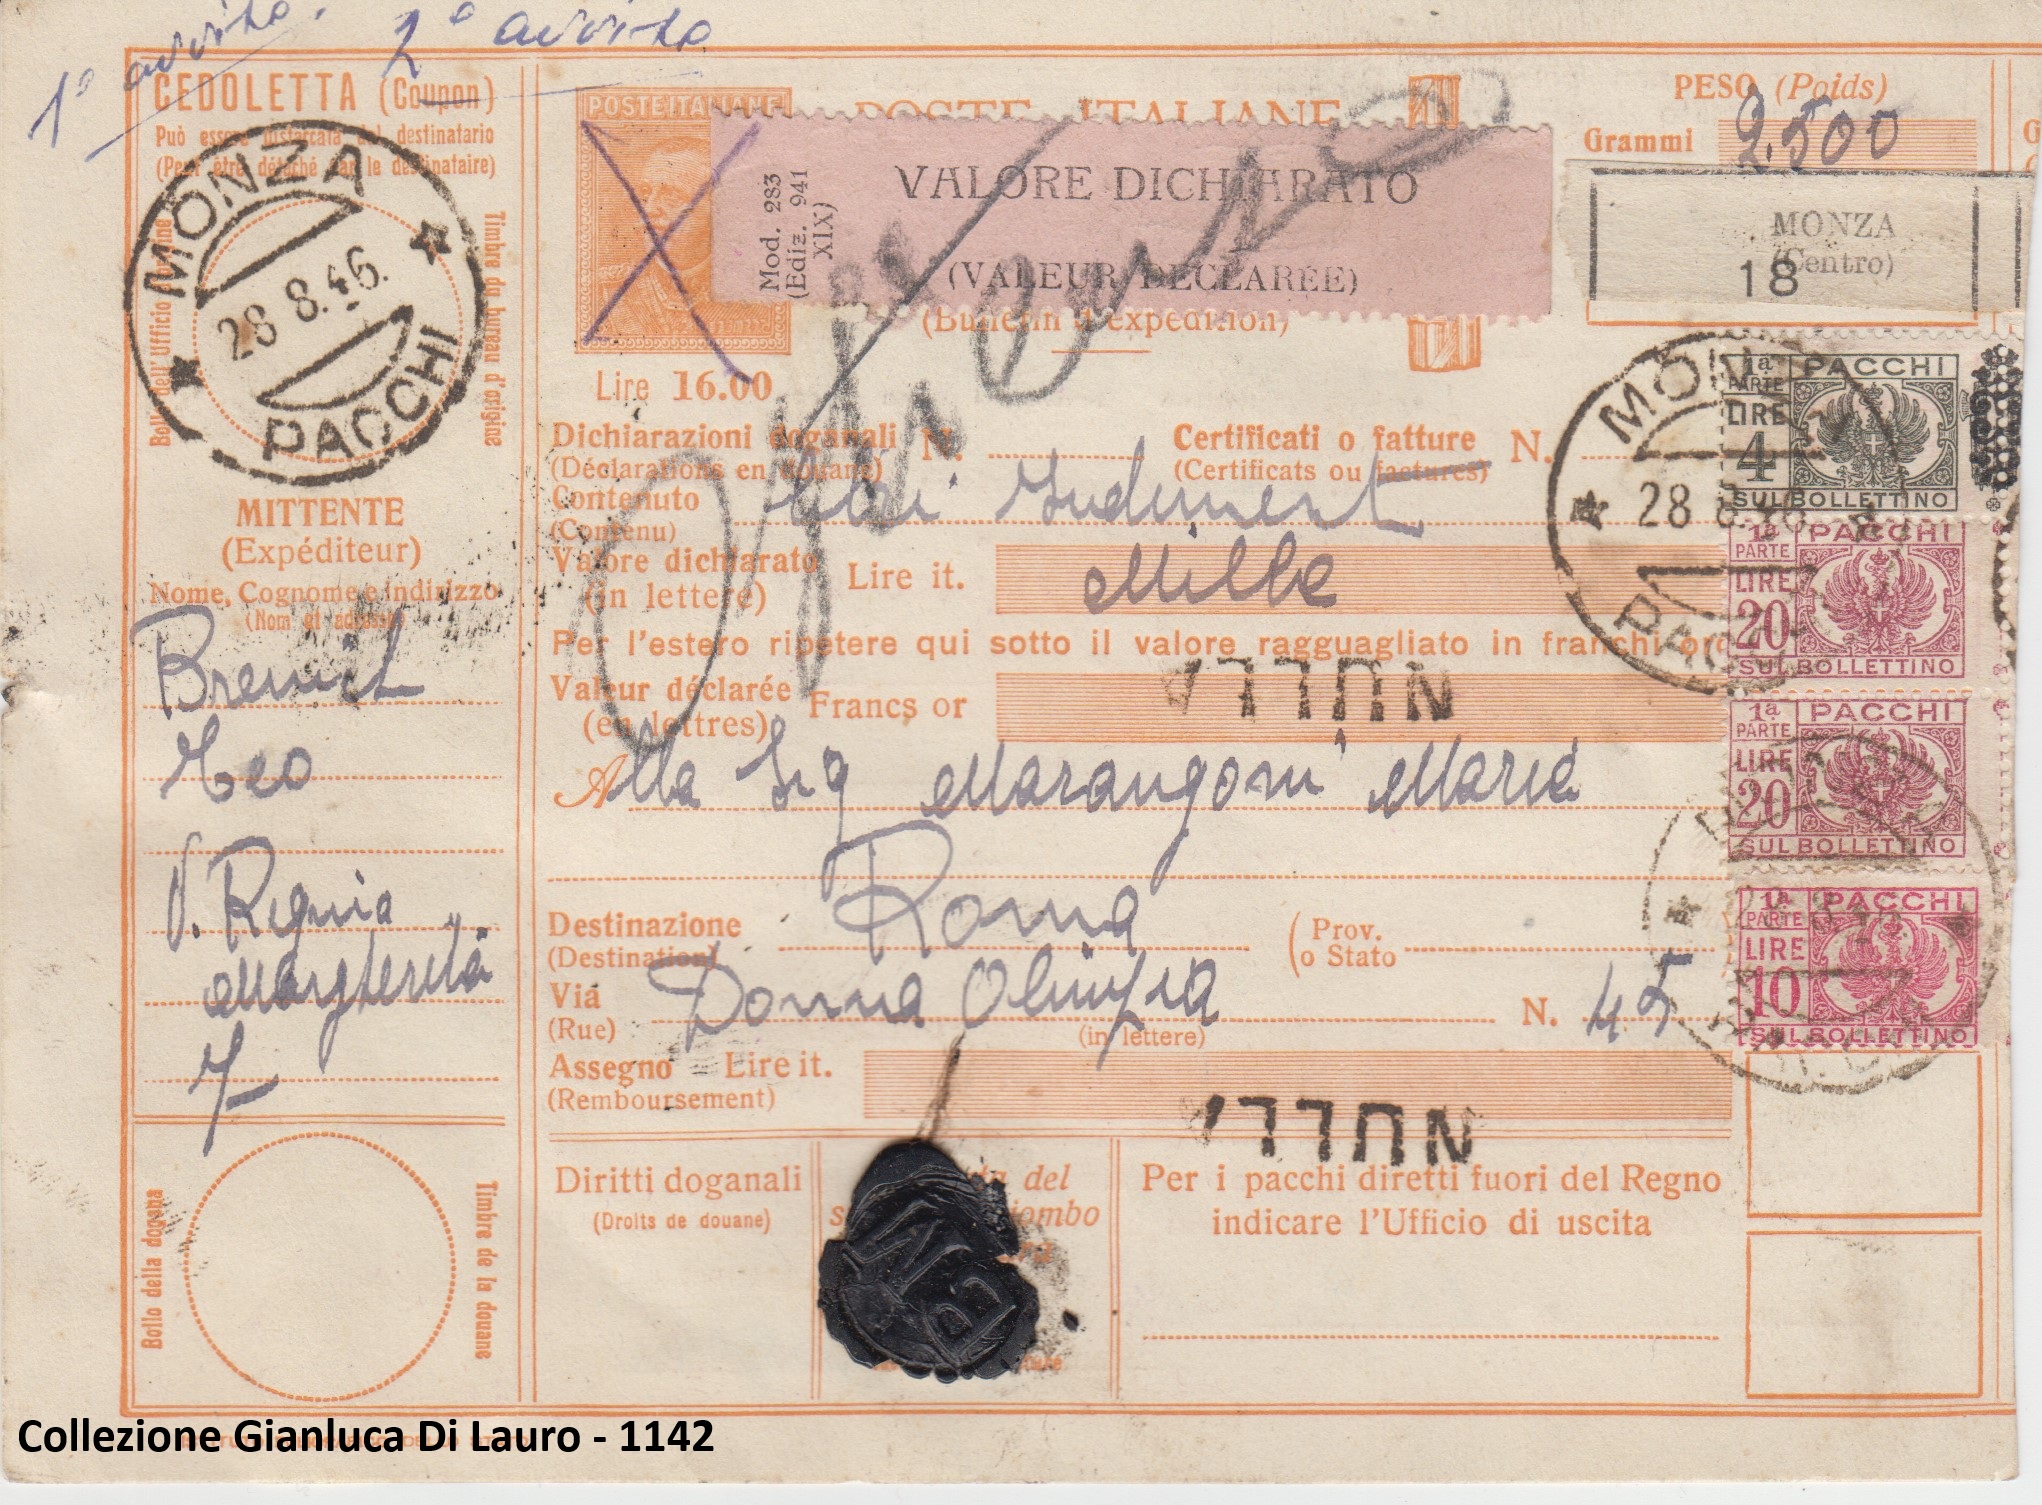 1º avviso.
2º avviso
CEDOLETTA (Coupon)
Può essere distaccata dal destinatario
(Peut être détaché par le destinataire)
Bollo dell'Ufficio
Timbre du bureau d'origine
MONZA
28 8.46.
PACCHI
MITTENTE
(Expéditeur)
Nome, Cognome e indirizzo
(Nom et adresse)
Teo
V. Regina
Margherita
7
Bollo della dogana
Timbre de la douane
POSTE ITALIANE
Lire 16.00
POSTE ITALIANE
Mod. 283
(Ediz. 941
XIX)
VALORE DICHIARATO
(VALEUR DÉCLARÉE)
(Bulletin d'expédition)
PESO (Poids)
Grammi 2.500
MONZA
(Centro)
18
Dichiarazioni doganali N.
(Déclarations en douane)
Certificati o fatture N.
(Certificats ou factures)
Contenuto
(Contenu)
Valore dichiarato
(in lettere)
Lire it. Mille
Per l'estero ripetere qui sotto il valore ragguagliato in franchi oro
Valeur déclarée
(en lettres)
Francs or
NULLA
Alla Sig Marangoni Maria
Destinazione Roma
(Destination)
(Prov.
o Stato
Via Donna Olimpia N. 45
(Rue)
(in lettere)
Assegno = Lire it.
(Remboursement)
NULLA
Diritti doganali
(Droits de douane)
del
piombo
Per i pacchi diretti fuori del Regno
indicare l'Ufficio di uscita
MONZA
28 8 46
PACCHI
1ª PARTE PACCHI
LIRE 4
SUL BOLLETTINO
1ª PARTE PACCHI
LIRE 20
SUL BOLLETTINO
1ª PARTE PACCHI
LIRE 20
SUL BOLLETTINO
1ª PARTE PACCHI
LIRE 10
SUL BOLLETTINO
Collezione Gianluca Di Lauro - 1142